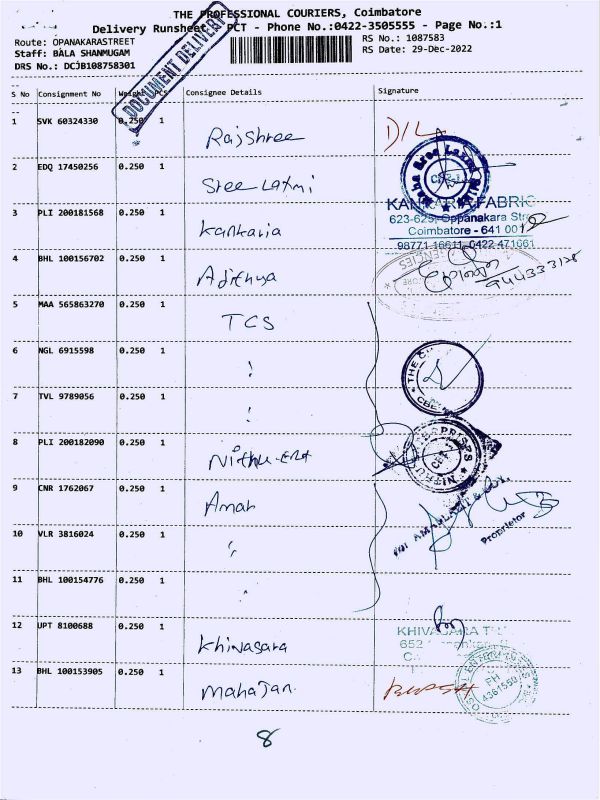 THE PROFESSIONAL COURIERS, Coimbatore
Delivery Runsheet PCT - Phone No.:0422-3505555 - Page No.:1
Route: OPANAKARASTREET
RS No.: 1087583
Staff: BALA SHANMUGAM
RS Date: 29-Dec-2022
DRS No.: DCJB108758301
DOCUMENT DELIVERY
S No Consignment No Weight PCS Consignee Details Signature
1 SVK 60324330 0.250 1 Rajshree D/L
2 EDQ 17450256 0.250 1 Sree Laxmi
Maha Sree Laxmi
CBE-1
3 PLI 200181568 0.250 1 Kankaria
KANKARIA FABRIC
623-625, Oppanakara Str
Coimbatore - 641 001
98771 16611, 0422 471661
4 BHL 100156702 0.250 1 Adithya
AGENCIES
5 MAA 565863270 0.250 1 TCS
6 NGL 6915598 0.250 1 "
THE C
CBE
7 TVL 9789056 0.250 1 "
8 PLI 200182090 0.250 1 Nithu-Ent
9 CNR 1762067 0.250 1 Amar
Proprietor
10 VLR 3816024 0.250 1 "
11 BHL 100154776 0.250 1 "
12 UPT 8100688 0.250 1 Khivasara
KHIVASARA T
652
13 BHL 100153905 0.250 1 Mahajan
PH
4361550
8